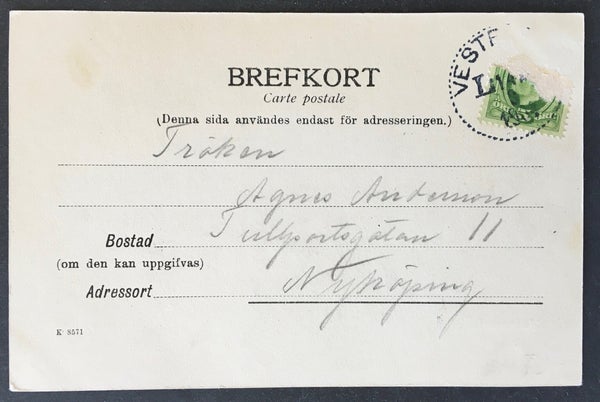 BREFKORT
Carte postale
(Denna sida användes endast för adresseringen.)
Fröken
Agnes Anderson
Bostad Tullportsgatan 11
(om den kan uppgifvas)
Adressort Nyköping
K 8571
VESTE